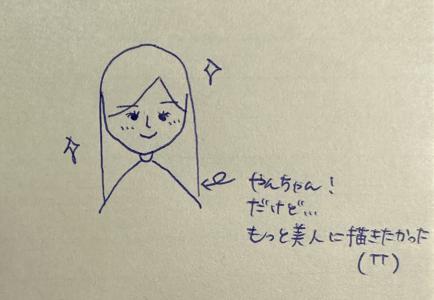 やんちゃん!
だけど...
もっと美人に描きたかった
(TT)